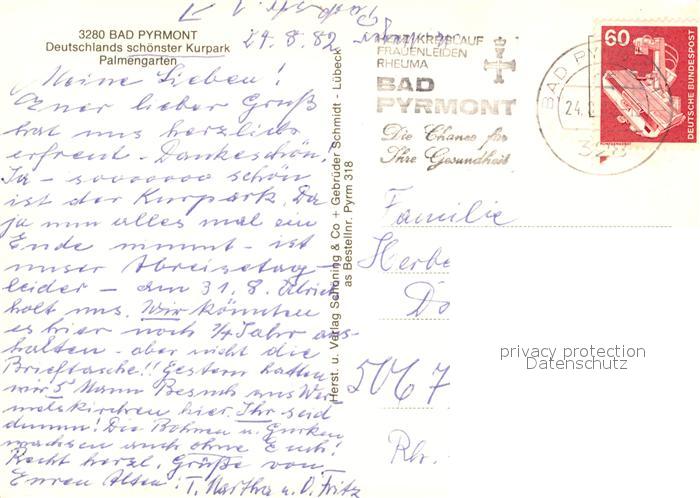 3280 BAD PYRMONT
Deutschlands schönster Kurpark
Palmengarten
24.8.82
Meine Lieben!
Euer lieber Gruß
hat uns herzlich
erfreut. Dankeschön.
Ja - sooooooo schön
ist der Kurpark. Da
ja nun alles mal ein
Ende nimmt - ist
unser Abreisetag -
leider - am 31.8. Ulrich
holt uns. Wir könnten
es hier noch 3/4 Jahr aus-
halten - aber nicht die
Brieftasche!! Gestern hatten
wir 5 Mann Besuch aus Wer-
melskirchen hier. Ihr seid
dumm! Die Bohnen u. Gurken
wachsen auch ohne Euch!
Recht herzl. Grüße von
Euren Alten: T. Martha u. O. Fritz
Herst. u. Verlag Schöning & Co + Gebrüder Schmidt - Lübeck
as Bestellnr. Pyrm 318
HERZ/KREISLAUF
FRAUENLEIDEN
RHEUMA
BAD
PYRMONT
Die Chance für
Ihre Gesundheit
BAD PY
24.
328
60
DEUTSCHE BUNDESPOST
Familie
Herbe
Do
5067
Rh.
privacy protection
Datenschutz